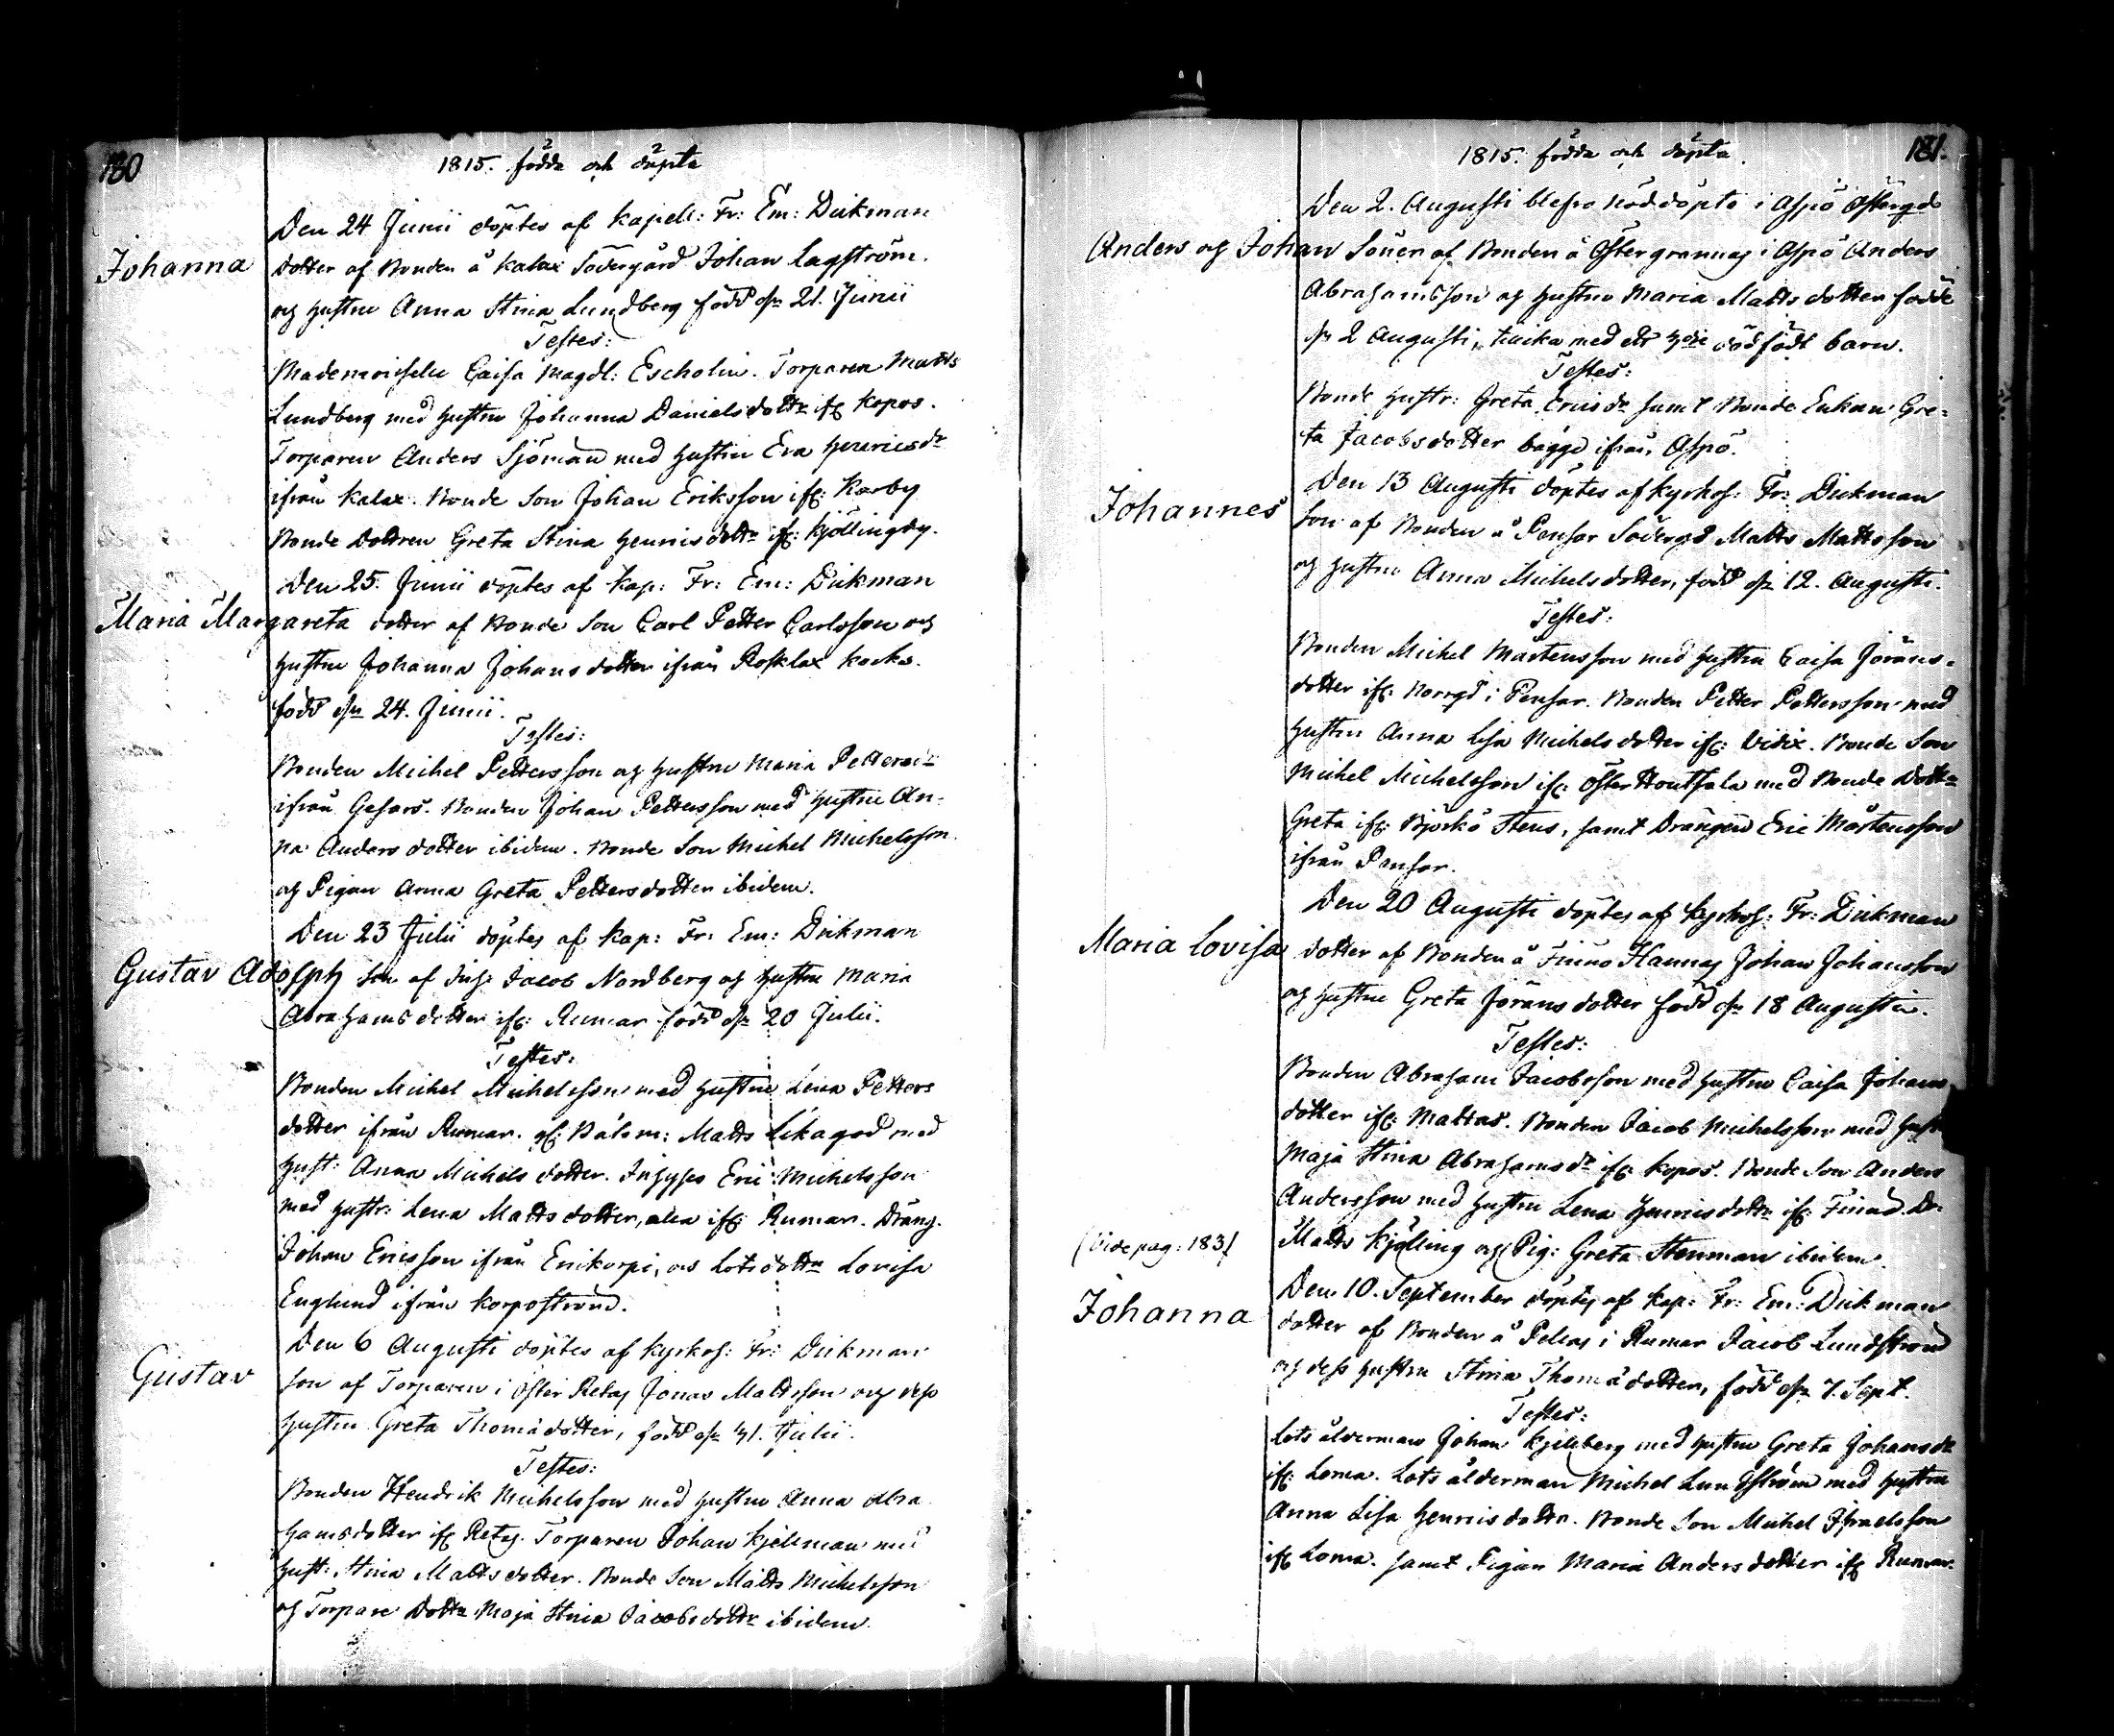 180
1815. födde och döpte
Den 24 Junii döptes af Kapell: Fr: Em: Dickman
Johanna dotter af Bonden å Kalax Södergård Johan Lagström.
och hustru Anna Stina Lundberg född d. 21. Junii
Testes:
Mademoiselle Caisa Magdl: Escholin. Torparen Matts
Lundberg med hustru Johanna Danielsdottr ifr Kopos.
Torparen Anders Sjöman med hustru Eva Henricsdr
ifrån Kalax. Bonde Son Johan Eriksson ifr: Karby
Bonde Dottren Greta Stina Henricsdottr ifr: Kjöllingby.
Den 25. Junii döptes af Kap: Fr: Em: Dickman
Maria Margareta dotter af Bonde Son Carl Petter Carlsson och
hustru Johanna Johansdotter ifrån Rosklax Kocks.
född den 24. Junii.
Testes:
Bonden Michel Pettersson och hustru Maria Pettersdr
ifrån Gesars. Bonden Johan Pettersson med hustru An-
na Andersdotter ibidem. Bonde Son Michel Michelsson
och Pigan Anna Greta Pettersdotter ibidem.
Den 23 Julii döptes af Kap: Fr: Em: Dickman
Gustav Adolph Son af Inh: Jacob Nordberg och hustru Maria
Abrahamsdotter ifr: Rumar född d. 20 Julii.
Testes:
Bonden Michel Michelsson med hustru Lena Petters
dotter ifrån Rumar. af: Båtsm: Matts Likagod med
hust: Anna Michelsdotter. Inhyses Eric Michelsson
med hustr: Lena Mattsdotter, alla ifr: Rumar. Dräng.
Johan Ericsson ifrån Erikorpi, och Lotsdottr Lovisa
Englund ifrån Korpostrand.
Den 6 Augusti döptes af Kyrkoh: Fr: Dickman
Gustav son af Torparen i Öster Retas Jonas Mattsson och dess
hustru Greta Thomadotter, född d. 31. Julii.
Testes:
Bonden Hendrik Michelsson med hustru Anna Abra
hamsdotter ifr Retas. Torparen Johan Kjellman med
hust: Stina Mattsdotter. Bonde Son Matts Michelsson
och Torpare Dottr Maja Stina Jacobsdottr ibidem.
181.
1815. födde och döpte.
Den 2. Augusti blefvo nöddöpte i Aspö Östergd
Anders och Johan Söner af Bonden å Östergrannas i Aspö Anders
Abrahamsson och hustru Maria Mattsdotter födde
d. 2 Augusti, tillika med ett 3die dödfödt barn.
Testes:
Bonde hustr: Greta Ericsdr samt Bonde Enkan Gre-
ta Jacobsdotter bägge ifrån Aspö.
Den 13 Augusti döptes af Kyrkoh: Fr: Dickman
Johannes Son af Bonden å Pensar Södergd Matts Mattsson
och hustru Anna Michelsdotter, född d. 12. Augusti.
Testes:
Bonden Michel Mårtensson med hustru Caisa Jörans-
dotter ifr: Norrgd i Pensar. Bonden Petter Pettersson med
hustru Anna Lisa Michelsdotter ifr: Vidix. Bonde Son
Michel Michelsson ifr: Öster Houtsala med Bonde Dottr
Greta ifr: Björkö Stens, samt Drängen Eric Mårtensson
ifrån Pensar.
Den 20 Augusti döptes af Kyrkoh: Fr: Dickman
Maria Lovisa dotter af Bonden å Finno Hannas Johan Johansson
och hustru Greta Jöransdotter född d. 18 Augusti.
Testes:
Bonden Abraham Jacobsson med hustru Caisa Johans
dotter ifr: Mattas. Bonden Jacob Michelsson med hust
Maja Stina Abrahamsdr ifr: Kopos. Bonde Son Anders
Andersson med hustru Lena Henricsdottr ifr: Finno. Dr:
Matts Kjölling och Pig: Greta Stenman ibidem.
(Vide pag: 183)
Den 10. September döptes af Kap: Fr: Em: Dickman
Johanna dotter af Bonden å Pellas i Rumar Jacob Lundstrand
och dess hustru Stina Thomadotter, född d. 7. Sept.
Testes:
Lots ålderman Johan Kjellberg med hustru Greta Johansdr
ifr: Loma. Lots ålderman Michel Lundström med hustru
Anna Lisa Henricsdottr. Bonde Son Michel Israelsson
ifr Loma. samt Pigan Maria Andersdotter ifr Rumar.